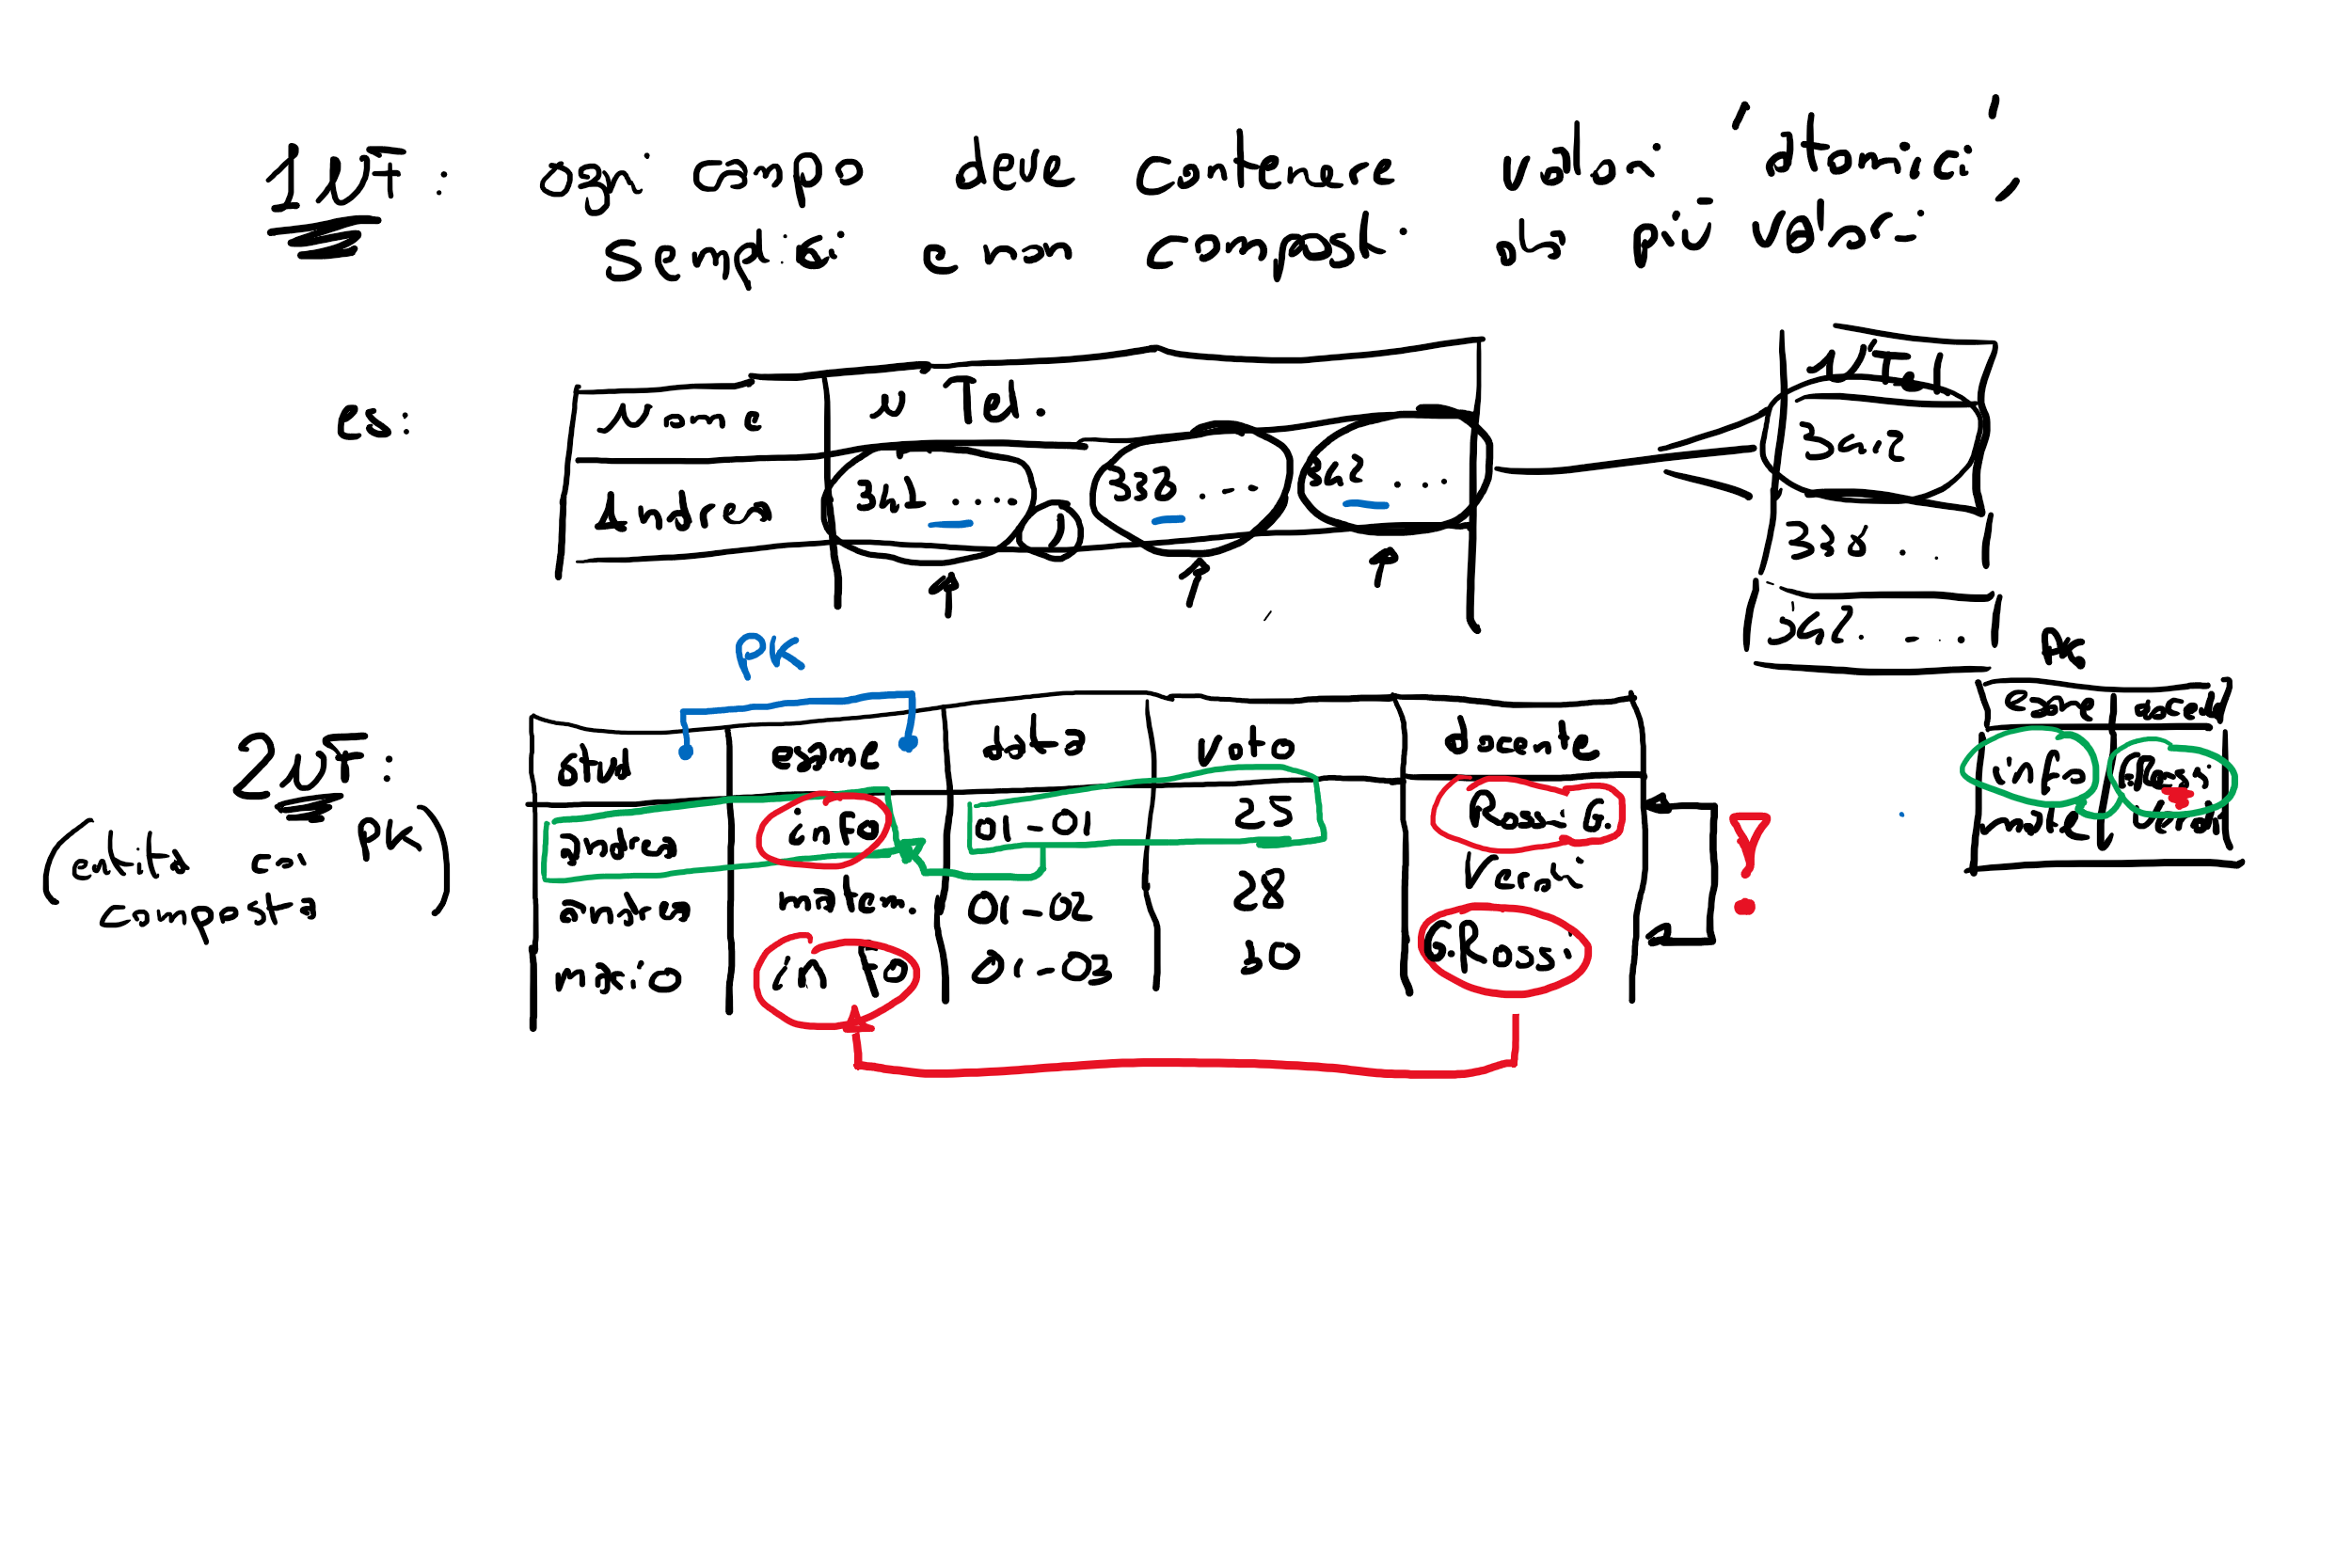 1NF: ogni campo deve contenere valori "atomici",
semplici e non composti da più valori
es:
Nome N Tel.
Andrea 341 .... , 338 ... 342 ...
N Tel
342
338 . .
342. ...
PK
2NF:
(entità con PK
composta)
stud esame data voto docente
andrea info 01-01 25 Rossi G.
andrea matem. 01-02 28 Verdi
mario info 01-03 30 G.Rossi
!
PK
esame docente
info Rossi